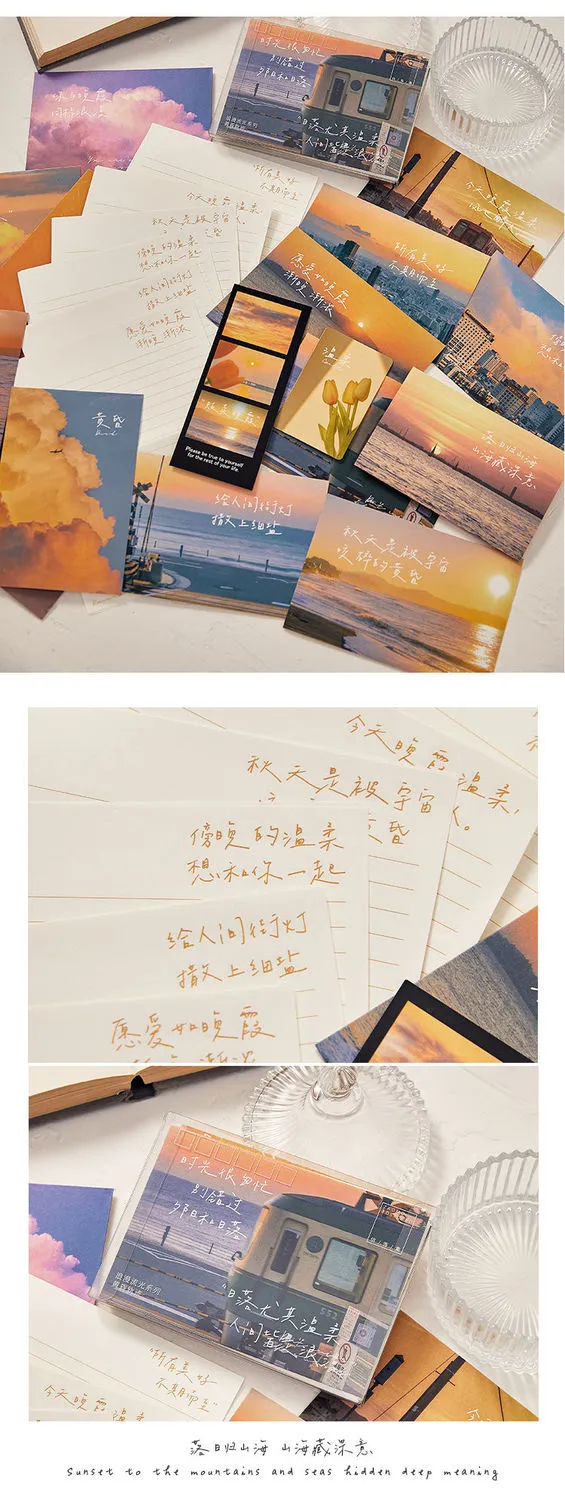 时光很匆忙
别错过
夕阳和日落
日落尤其温柔
人间皆是浪漫
浪漫流光系列
同样浪漫
所有美好
不期而至
今天晚霞温柔
秋天是被宇宙
傍晚的温柔
想和你一起
给人间街灯
撒上细盐
愿爱如晚霞
渐晚渐浓
今天晚霞温柔
所有美好
不期而至
愿爱如晚霞
渐晚渐浓
温柔
落日归山海
山海藏深意
黄昏
Please be true to yourself
for the rest of your life.
给人间街灯
撒上细盐
秋天是被宇宙
咬碎的黄昏
今天晚霞温柔,
秋天是被宇宙
黄昏
傍晚的温柔
想和你一起
给人间街灯
撒上细盐
愿爱如晚霞
时光很匆忙
别错过
夕阳和日落
浪漫流光系列
"日落尤其温柔
人间皆是浪漫
553
所有美好
不期而至"
今天晚霞温柔
落日归山海 山海藏深意
Sunset to the mountains and seas hidden deep meaning